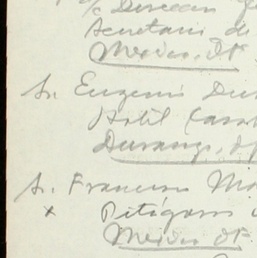 c/o Direccion
Secretaria de
Mexico, DF.
Sr. Eugenio
Hotel Casa
Durango, d
Sr. Francisco
x Pitágoras
Mexico DF.